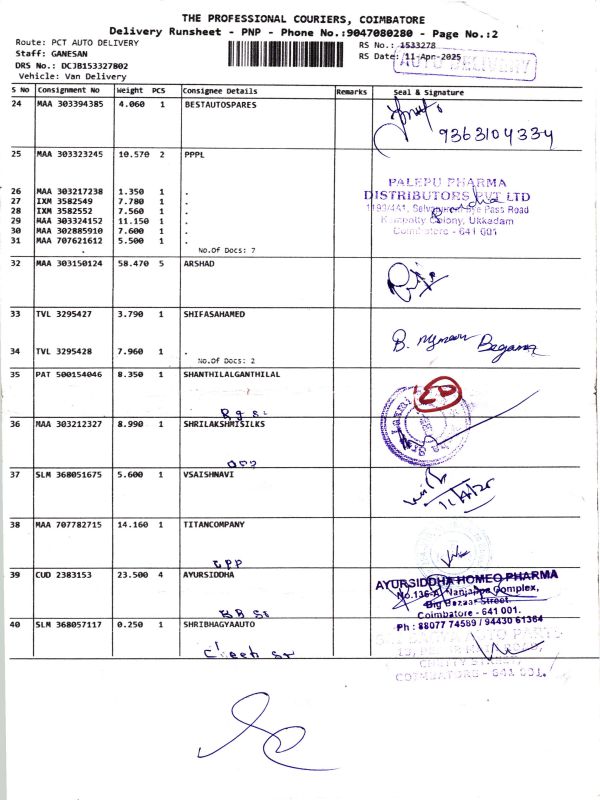 THE PROFESSIONAL COURIERS, COIMBATORE
Delivery Runsheet - PNP - Phone No.:9047080280 - Page No.:2
Route: PCT AUTO DELIVERY
RS No.: 1533278
Staff: GANESAN
RS Date: 11-Apr-2025
AUTO DELIVERY
DRS No.: DCJB153327802
Vehicle: Van Delivery
S No Consignment No Weight PCS Consignee Details Remarks Seal & Signature
24 MAA 303394385 4.060 1 BESTAUTOSPARES
9363104334
25 MAA 303323245 10.570 2 PPPL
PALEPU PHARMA
26 MAA 303217238 1.350 1 .
DISTRIBUTORS PVT LTD
27 IXM 3582549 7.780 1 .
1193/4A1, Selvapuram Bye Pass Road
28 IXM 3582552 7.560 1 .
29 MAA 303324152 11.150 1 .
Colony, Ukkadam
30 MAA 302885910 7.600 1 .
Coimbatore - 641 001
31 MAA 707621612 5.500 1 .
No.Of Docs: 7
32 MAA 303150124 58.470 5 ARSHAD
33 TVL 3295427 3.790 1 SHIFASAHAMED
B. Begama
34 TVL 3295428 7.960 1 .
No.Of Docs: 2
35 PAT 500154046 8.350 1 SHANTHILALGANTHILAL
36 MAA 303212327 8.990 1 SHRILAKSHMISILKS
37 SLM 368051675 5.600 1 VSAISHNAVI
11/4/25
38 MAA 707782715 14.160 1 TITANCOMPANY
39 CUD 2383153 23.500 4 AYURSIDDHA
AYURSIDDHA HOMEO PHARMA
No.136-A, Nanjappa Complex,
Big Bazaar Street,
Coimbatore - 641 001.
Ph : 88077 74589 / 94430 61364
40 SLM 368057117 0.250 1 SHRIBHAGYAAUTO
COIMBATORE - 641 001.